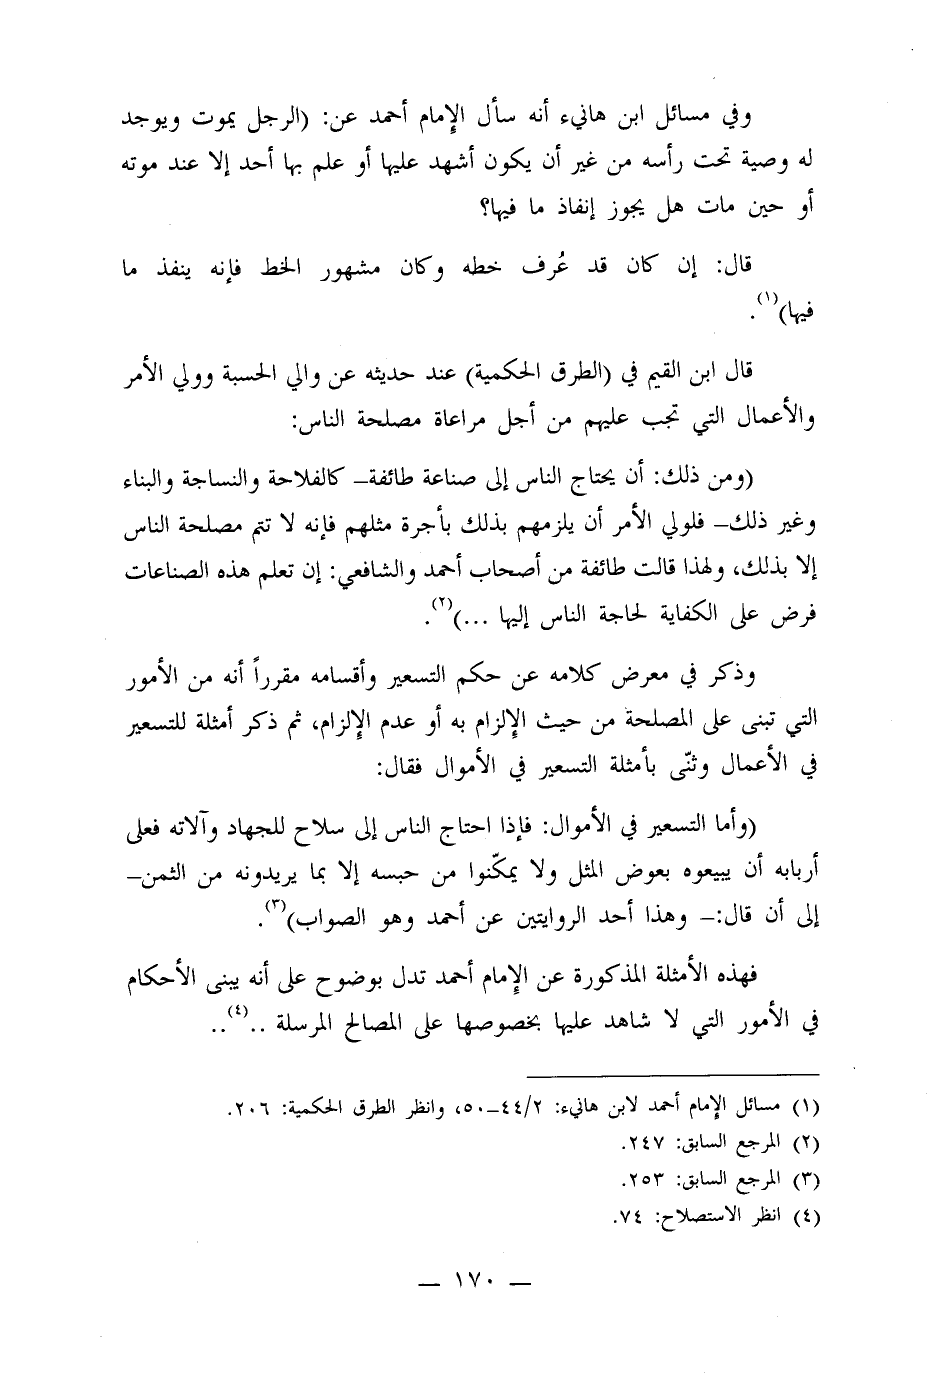 وفي مسائل ابن هانيء أنه سأل الإمام أحمد عن: (الرجل يموت ويوجد
له وصية تحت رأسه من غير أن يكون أشهد عليها أو علم بها أحد إلا عند موته
أو حين مات هل يجوز إنفاذ ما فيها؟
قال: إن كان قد عُرف خطه وكان مشهور الخط فإنه ينفذ ما
فيها)(١).
قال ابن القيم في (الطرق الحكمية) عند حديثه عن والي الحسبة وولي الأمر
والأعمال التي تجب عليهم من أجل مراعاة مصلحة الناس:
(ومن ذلك: أن يحتاج الناس إلى صناعة طائفة– كالفلاحة والنساجة والبناء
وغير ذلك– فلولي الأمر أن يلزمهم بذلك بأجرة مثلهم فإنه لا تتم مصلحة الناس
إلا بذلك، ولهذا قالت طائفة من أصحاب أحمد والشافعي: إن تعلم هذه الصناعات
فرض على الكفاية لحاجة الناس إليها ...)(٢).
وذكر في معرض كلامه عن حكم التسعير وأقسامه مقرراً أنه من الأمور
التي تبنى على المصلحة من حيث الإلزام به أو عدم الإلزام، ثم ذكر أمثلة للتسعير
في الأعمال وثنّى بأمثلة التسعير في الأموال فقال:
(وأما التسعير في الأموال: فإذا احتاج الناس إلى سلاح للجهاد وآلاته فعلى
أربابه أن يبيعوه بعوض المثل ولا يمكّنوا من حبسه إلا بما يريدونه من الثمن–
إلى أن قال:– وهذا أحد الروايتين عن أحمد وهو الصواب)(٣).
فهذه الأمثلة المذكورة عن الإمام أحمد تدل بوضوح على أنه يبنى الأحكام
في الأمور التي لا شاهد عليها بخصوصها على المصالح المرسلة ..(٤)..
(١) مسائل الإمام أحمد لابن هانيء: ٤٤/٢–٥٠، وانظر الطرق الحكمية: ٢٠٦.
(٢) المرجع السابق: ٢٤٧.
(٣) المرجع السابق: ٢٥٣.
(٤) انظر الاستصلاح: ٧٤.
— ١٧٠ —